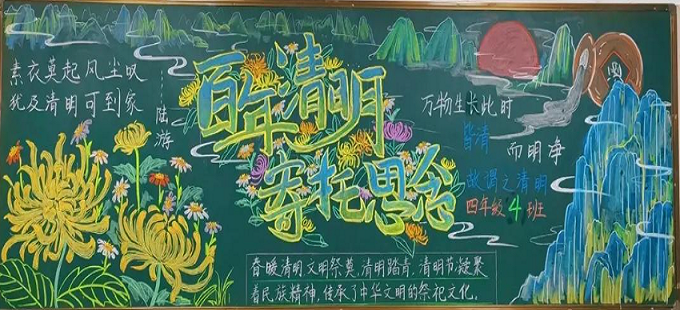 素衣莫起风尘叹
犹及清明可到家
——陆游
百年清明
寄托思念
万物生长此时
皆清
而明净
故谓之清明
四年级4班
春暖清明,文明祭奠,清明踏青,清明节,凝聚
着民族精神,传承了中华文明的祭祀文化。